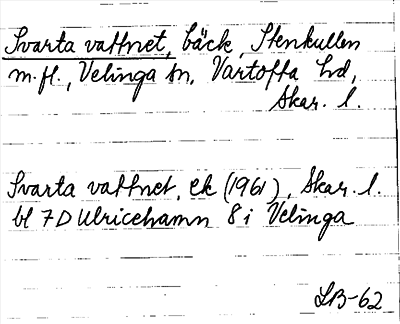 Svarta vattnet, bäck, Stenkullen
m.fl., Velinga sn, Vartofta hd,
Skar. l.
Svarta vattnet, ek (1961), Skar. l.
bl 7D Ulricehamn 8 i Velinga
LB-62